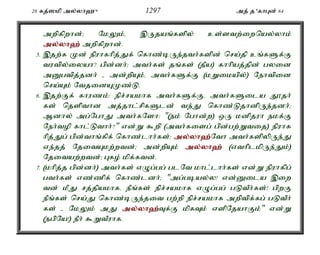 28 கத்ஸமி அல்லாஹ் 1297 அத் தஃகாபுன் 64
அறிகிறான்; மேலும், இருதயங்களில் உள்ளவற்றையெல்லாம்
அல்லாஹ் அறிகிறான்.
5. இதற்கு முன் நிராகரித்துக் கொண்டிருந்தவர்களின் செய்தி உங்களுக்கு
வரவில்லையா? பின்னர்; அவர்கள் தங்கள் (தீய) காரியத்தின் பலனை
அனுபவித்தனர் , அன்றியும், அவர்களுக்கு (மறுமையில்) நோவினை
செய்யும் வேதனையுமுண்டு.
6. இதற்குக் காரணம்: நிச்சயமாக அவர்களுக்கு, அவர்களுடைய தூதர்
கள் தெளிவான அத்தாட்சிகளுடன் வந்து கொண்டுதானிருந்தனர்;
ஆனால் அப்போது அவர்களோ: "(நம் போன்ற) ஒரு மனிதரா நமக்கு
நேர்வழி காட்டுவார்?" என்று கூறி (அவர்களைப் பின்பற்றுவதை) நிராக
ரித்துப் பின்வாங்கிக் கொண்டார்கள்: அல்லாஹ்வோ அவர்களிலிருந்து
எந்தத் தேவையுமற்றவன்; அன்றியும் அல்லாஹ் (எவரிடமிருந்தும்)
தேவையற்றவன்; புகழ் மிக்கவன்.
7. (மரித்த பின்னர்) அவர்கள் எழுப்பப் படவே மாட்டார்கள் என்று நிராகரிப்
பவர்கள் எண்ணிக் கொண்டனர்; "அப்படியல்ல! என்னுடைய இறை
வன் மீது சத்தியமாக, நீங்கள் நிச்சயமாக எழுப்பப் படுவீர்கள்! பிறகு
நீங்கள் செய்து கொண்டிருந்தவை பற்றி நிச்சயமாக அறிவிக்கப் படுவீர்
கள் - மேலும் அது அல்லாஹ்வுக்கு மிகவும் எளிதேயாகும்" என்று
(நபியே!) நீர் கூறுவீராக.